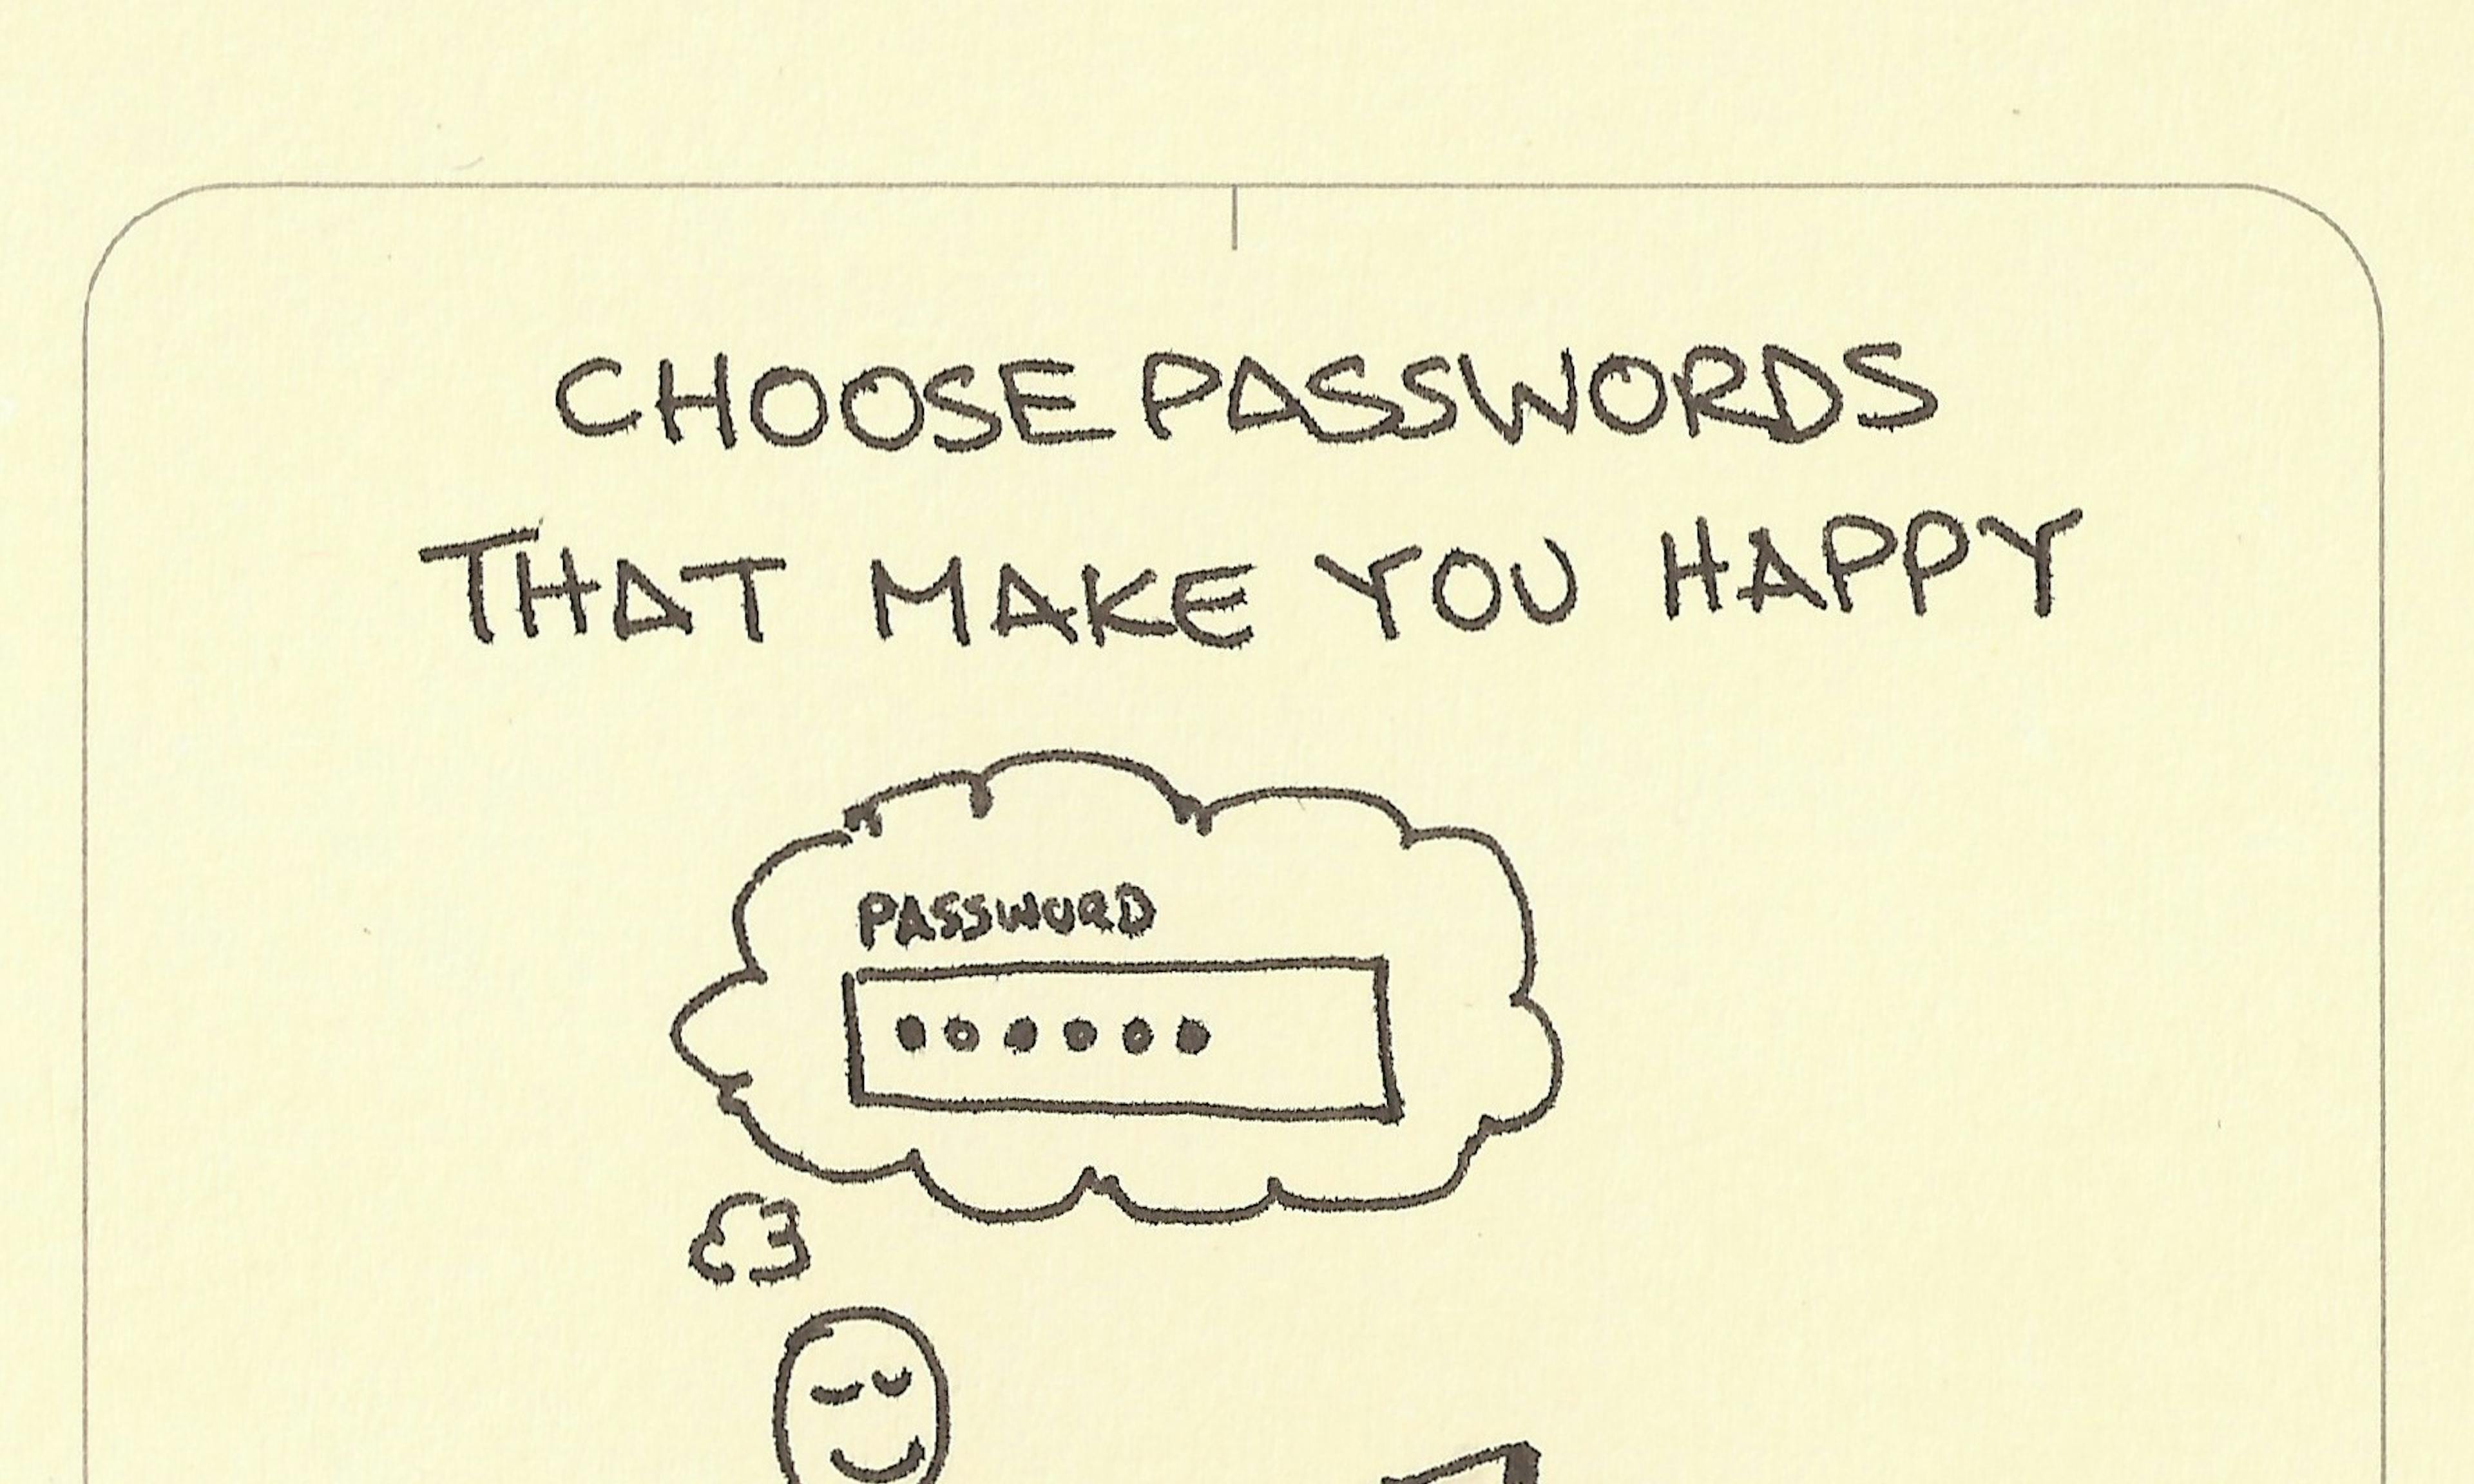 CHOOSE PASSWORDS
THAT MAKE YOU HAPPY
PASSWORD